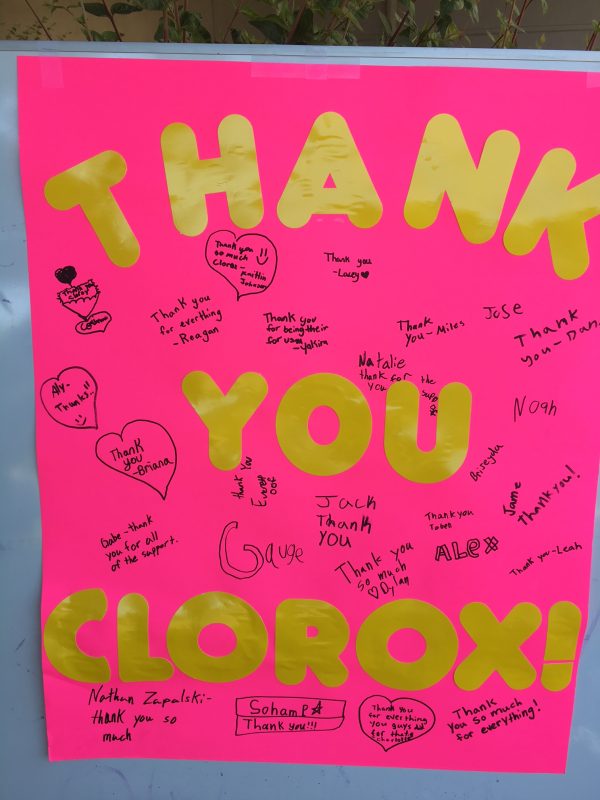 THANK
Thank you
so much
Clorox-
Kaitlin
Johnson
Thank you
-Lacey
Thank you
Clorox
Thank you
for everthing
-Reagan
Thank you
for being their
for us
-Yakira
Thank
you-Miles
Jose
Thank
you-Dan
Natalie
thank for the
you
Aly-
Thanks!!
YOU
Noah
Thank
you
-Briana
thank you
Everett
oof
Briseyda
Jame
Thank you!
Jack
Thank
you
Thank you
Gabe-thank
you for all
of the support.
Gauge
Alex
Thank you
so much
Dylan
Thank you-Leah
CLOROX!
Nathan Zapalski-
thank you so
much
Soham P
Thank you!!!
Thank you
for everthing
you guys did
for that
Charlotte
Thank
you so much
for everything!